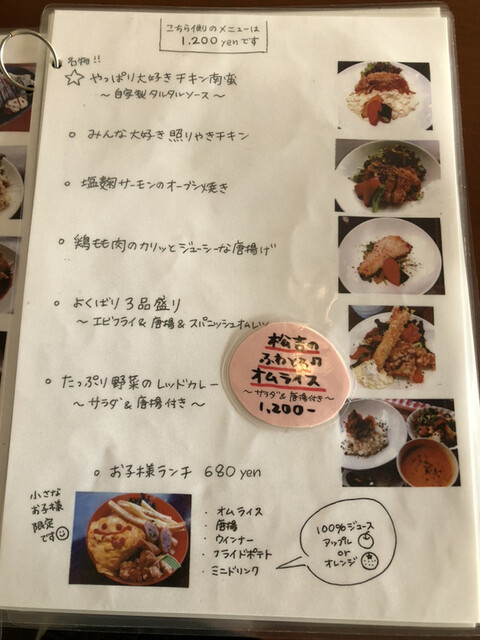 こちら側のメニューは
1,200yenです
名物!!
☆ やっぱり大好きチキン南蛮
～自家製タルタルソース～
○ みんな大好き照りやきチキン
○ 塩麹サーモンのオーブン焼き
○ 鶏もも肉のカリッとジューシーな唐揚げ
○ よくばり3品盛り
～エビフライ&唐揚&スパニッシュオムレツ
○ たっぷり野菜のレッドカレー
～サラダ&唐揚付き～
松吉の
ふわとろ♫
オムライス
～サラダ&唐揚付き～
1,200-
○ お子様ランチ 680yen
小さな
お子様
限定
です☺
・オムライス
・唐揚
・ウインナー
・フライドポテト
・ミニドリンク
100%ジュース
アップル
or
オレンジ